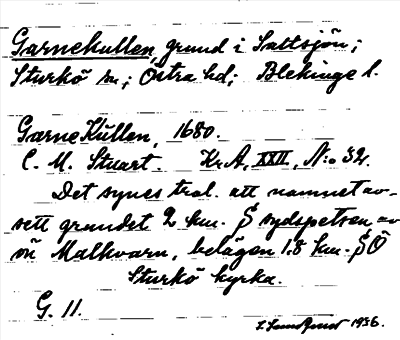 Garnekullen, grund i Saltsjön;
Sturkö sn.; Östra hd; Blekinge l.
GarneKullen, 1680.
C. M. Stuart. Kr.A, XXII, N:o 32.
Det synes trol. att namnet av-
sett grundet 2 km. S sydspetsen av
ön Malkvarn, belägen 1.8 km. SÖ
Sturkö kyrka.
G. 11.
1936.